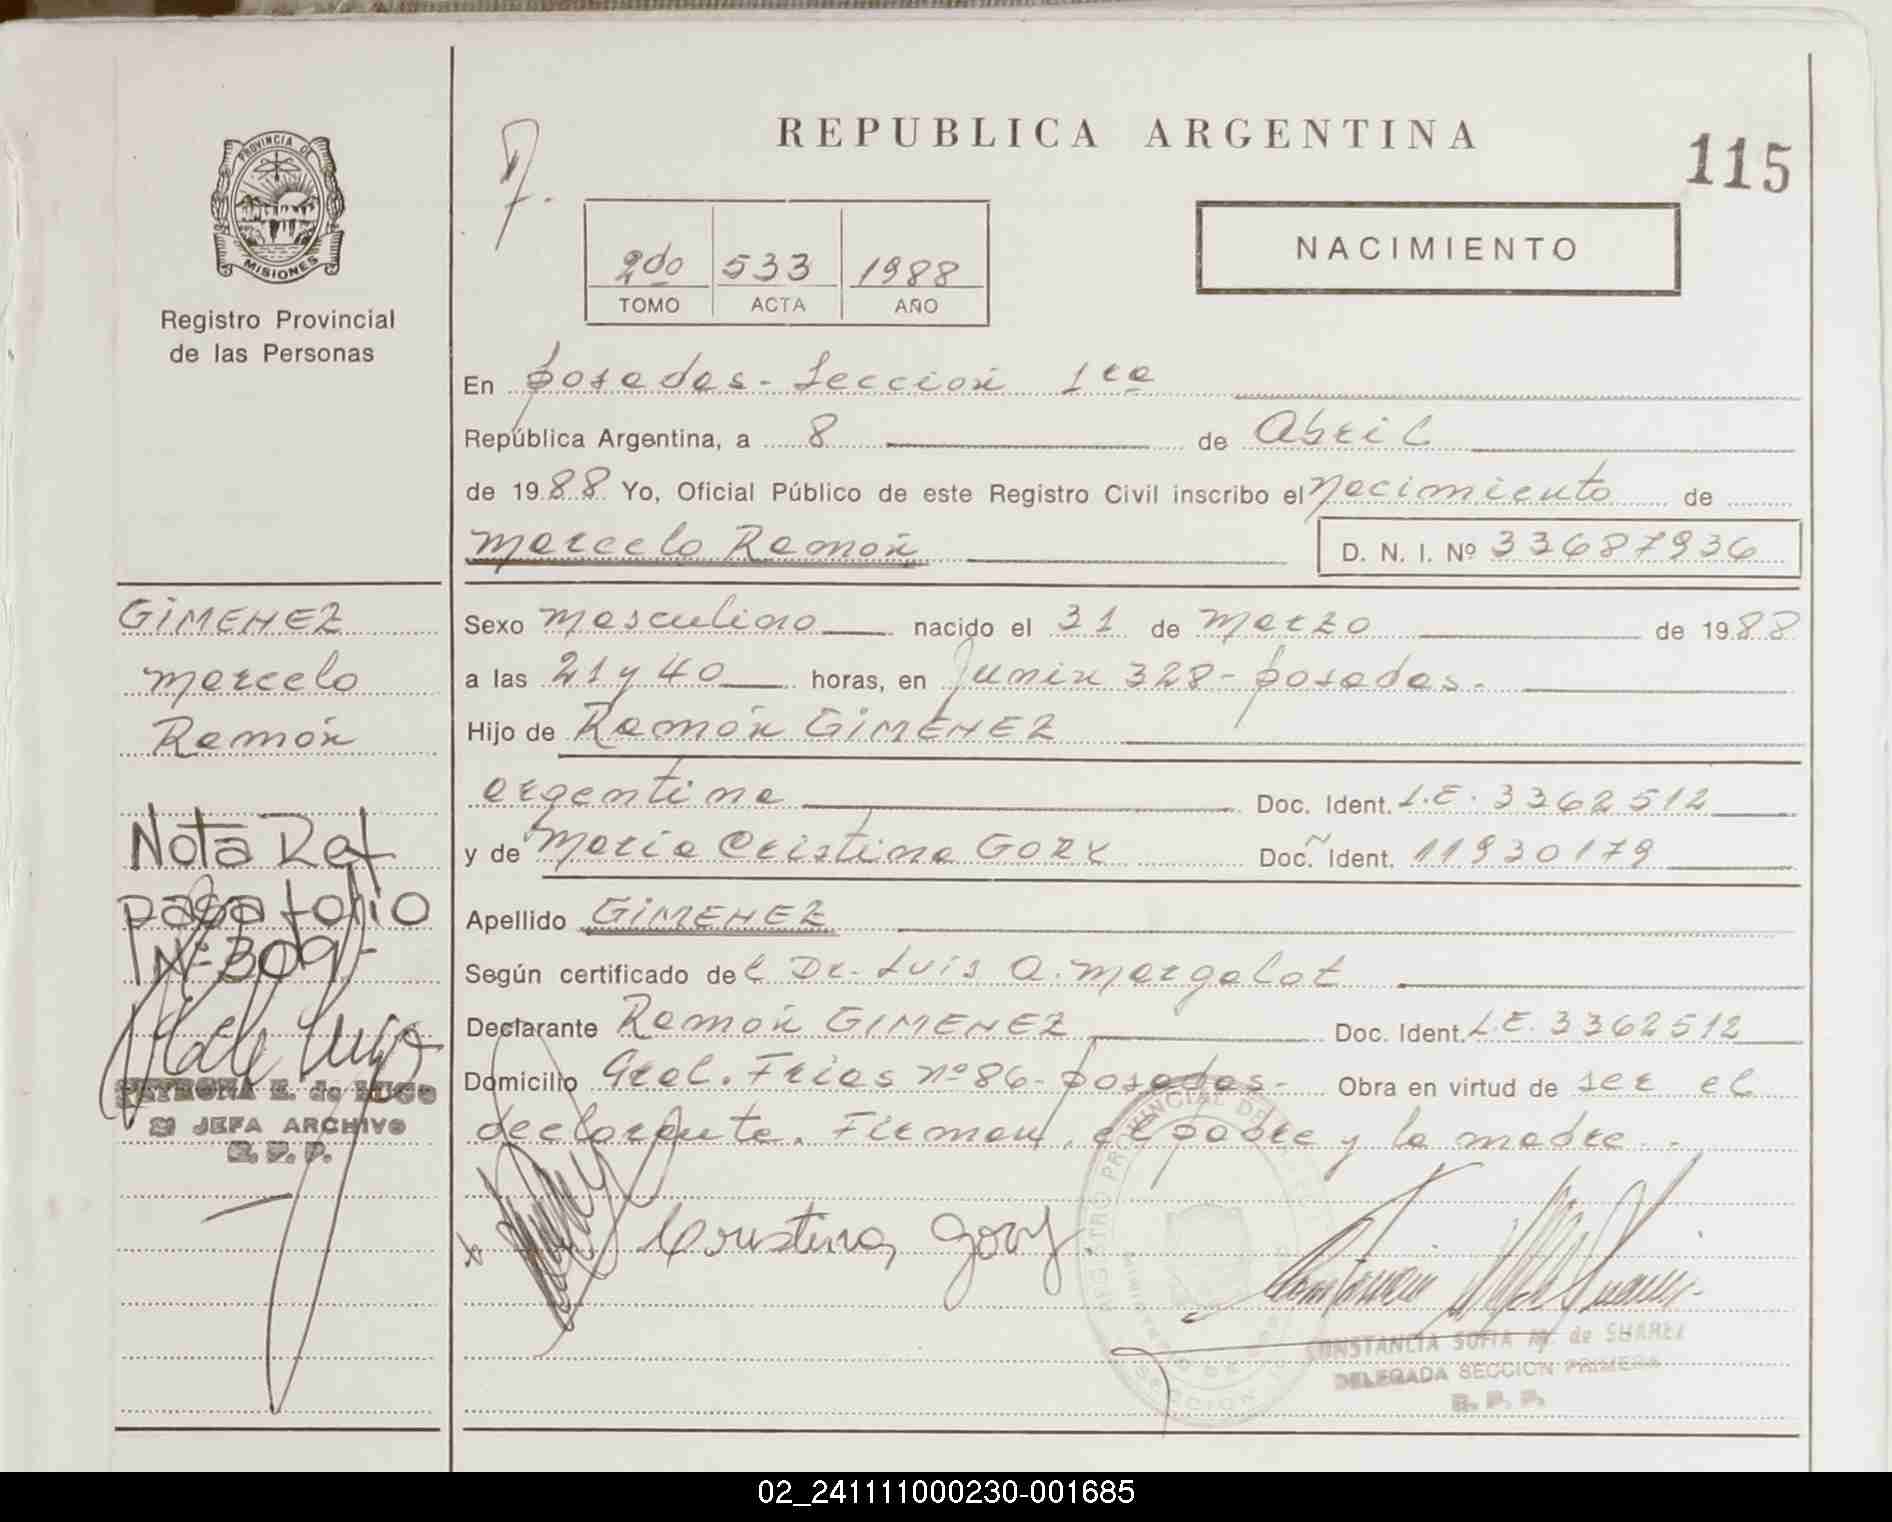 REPUBLICA ARGENTINA
115
PROVINCIA DE
MISIONES
Registro Provincial
de las Personas
2do 533 1988
TOMO ACTA AÑO
NACIMIENTO
En Posadas - Sección 1ra
República Argentina, a 8 de Abril
de 1988 Yo, Oficial Público de este Registro Civil inscribo el Nacimiento de
Marcelo Ramón
D. N. I. Nº 33687936
GIMENEZ
Marcelo
Ramón
Sexo Masculino nacido el 31 de Marzo de 1988
a las 21 y 40 horas, en Junin 328 - Posadas.
Hijo de Ramón GIMENEZ
argentina Doc. Ident. L.E. 3362512
y de Maria Cristina GORY Doc. Ident. 11930179
Apellido GIMENEZ
Según certificado del Dr. Luis A. Margalot
Declarante Ramón GIMENEZ Doc. Ident. L.E. 3362512
Domicilio Gral. Frias nº 86 - Posadas - Obra en virtud de ser el
declarante. Firman, el padre y la madre.
Nota Ref
pasa folio
Nº 309 -
PETRONA E. de LUGO
JEFA ARCHIVO
R. P. P.
Cristina Gory
REGISTRO PROVINCIAL DE LAS
MINISTERIO DE GOBIERNO
SECCION
CONSTANCIA SOFIA M. de SUAREZ
DELEGADA SECCION PRIMERA
R. P. P.
02_241111000230-001685